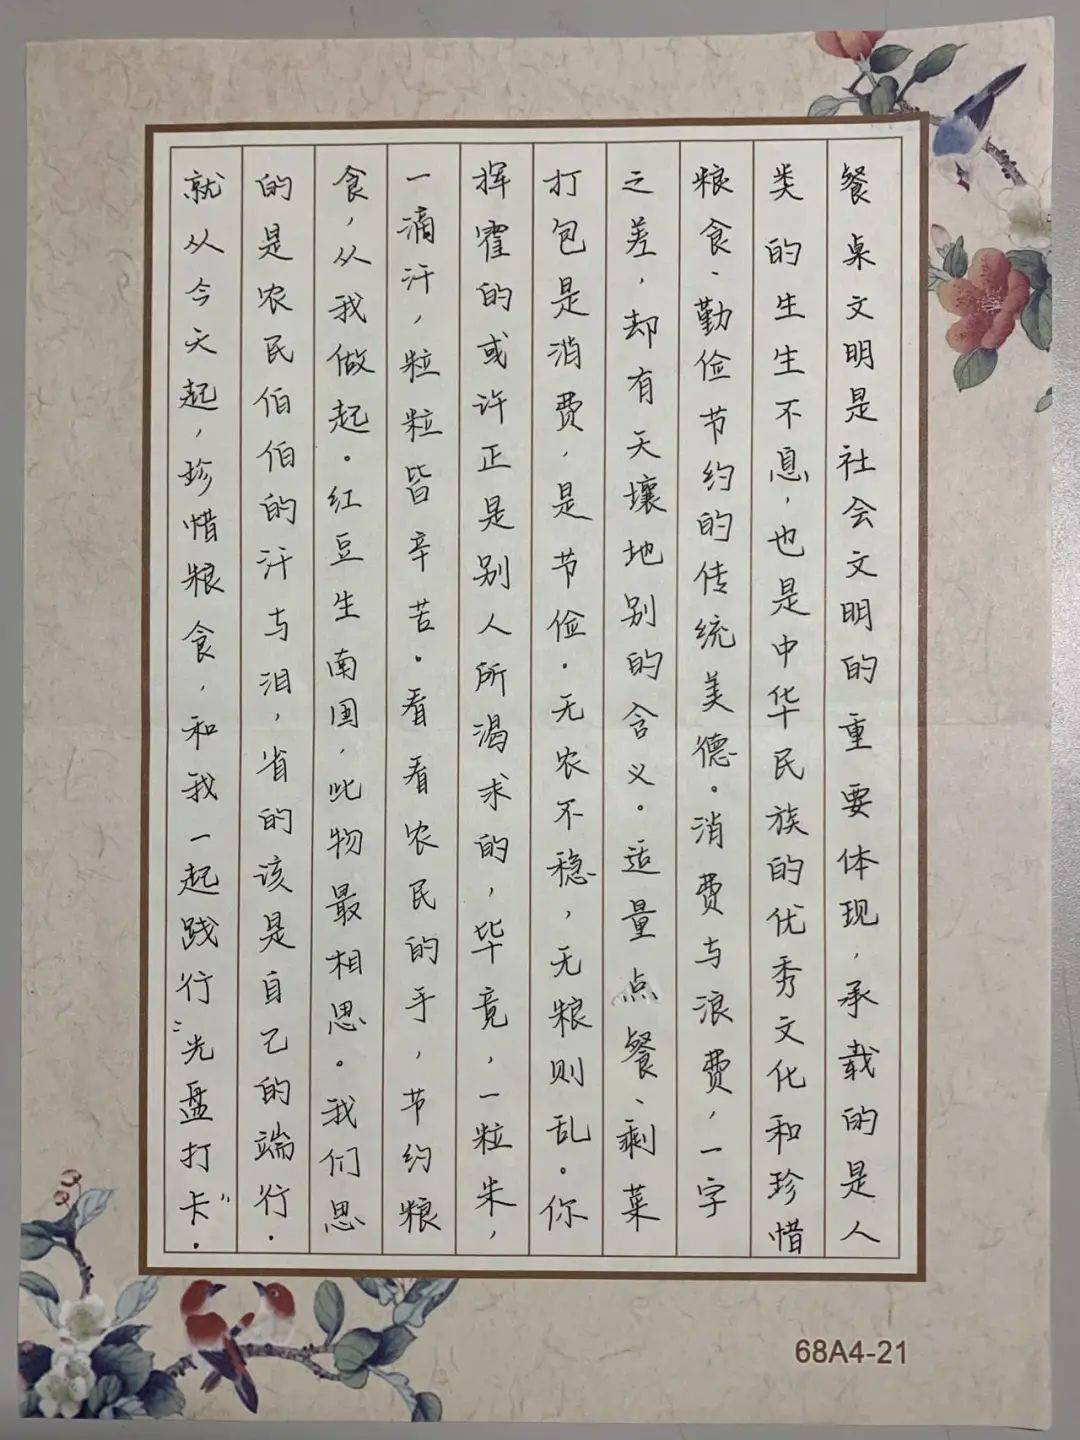 餐桌文明是社会文明的重要体现，承载的是人
类的生生不息，也是中华民族的优秀文化和珍惜
粮食、勤俭节约的传统美德。消费与浪费，一字
之差，却有天壤地别的含义。适量点餐、剩菜
打包是消费，是节俭。无农不稳，无粮则乱。你
挥霍的或许正是别人所渴求的，毕竟，一粒朱，
一滴汗，粒粒皆辛苦。看看农民的手，节约粮
食，从我做起。红豆生南国，此物最相思。我们思
的是农民伯伯的汗与泪，省的该是自己的端行。
就从今天起，珍惜粮食，和我一起践行“光盘打卡”。
68A4-21